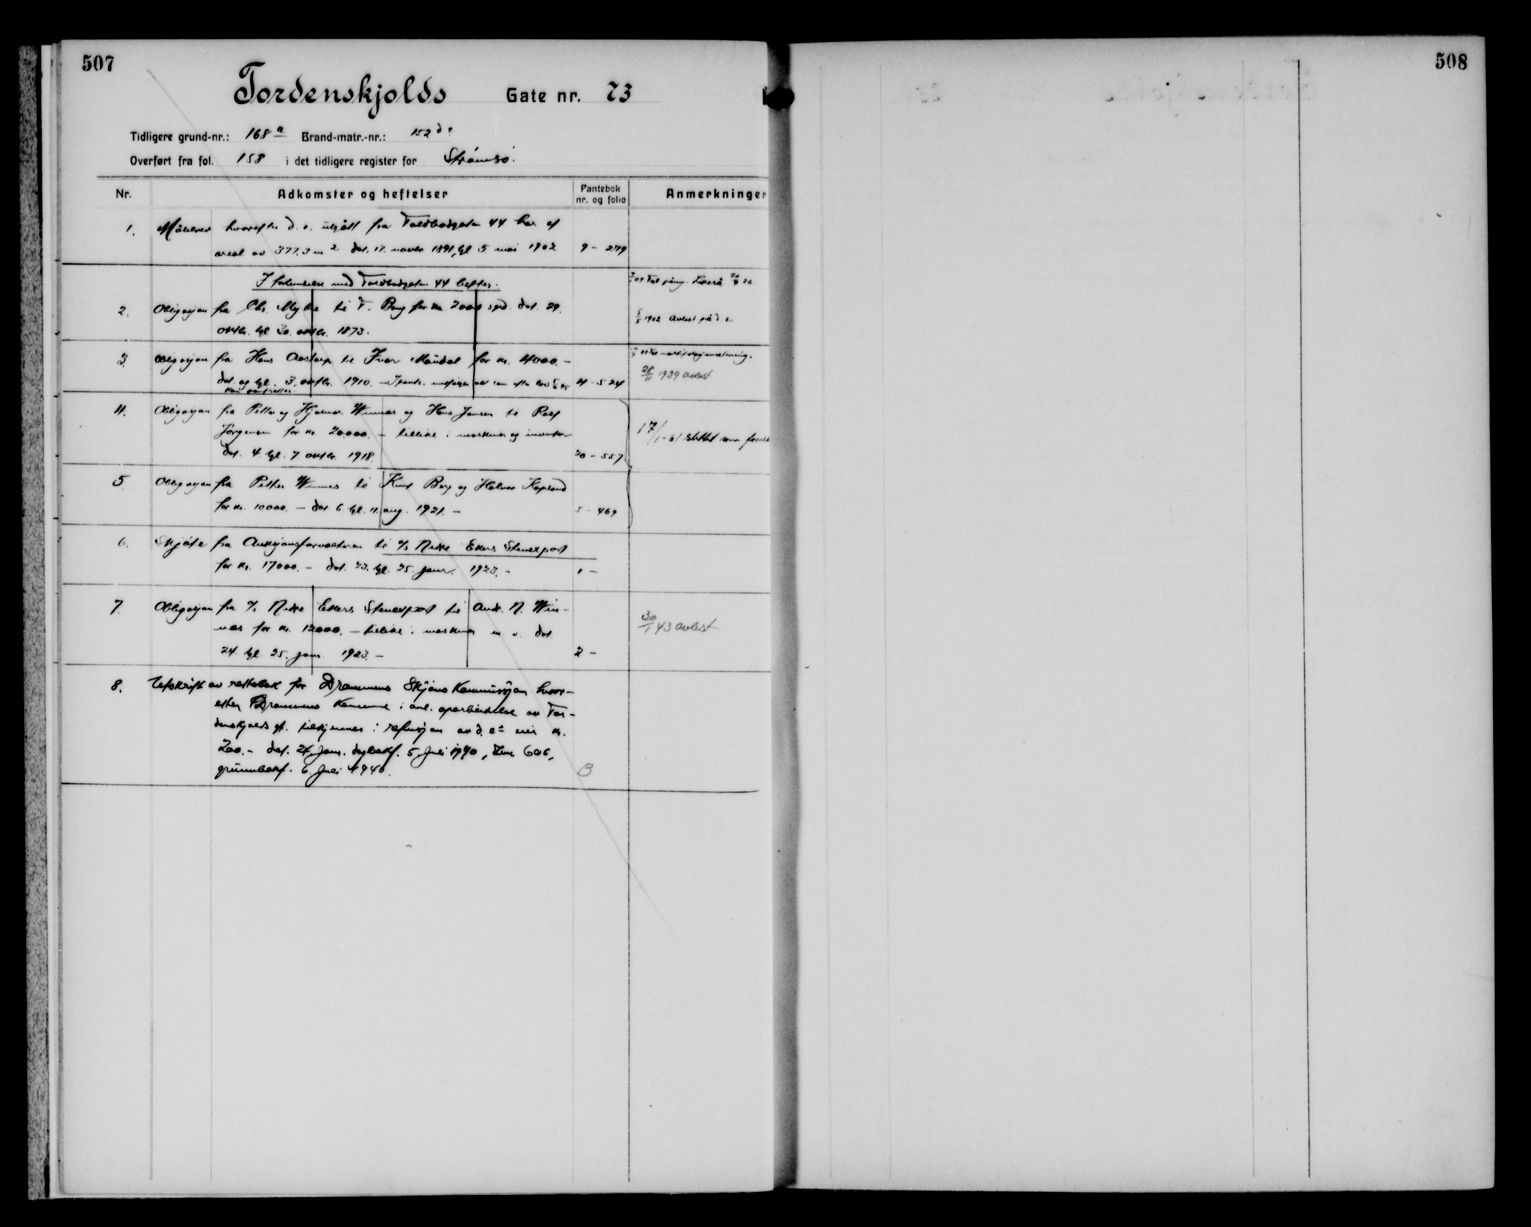 507
508
Tordenskjolds Gate nr. 23
Tidligere grund-nr.: 168 a Brand-matr.-nr.: 152 d
Overført fra fol. 158 i det tidligere register for Strømsø.
Nr. Adkomster og heftelser Pantebok nr. og folio Anmerkninger
1. Målebrev hvorefter d. e. utgått fra Toldbodgaten 44 har et
areal av 377.3 m² dat. 17. novbr. 1891, tgl. 5 mai 1902 9 - 279
I forbindelse med Toldbodgaten 44 hefter:
2. Obligasjon fra Chr. Mykle til F. Borg for 2000 spd. dat. 29.
oktbr. tgl. 30. oktbr. 1873.
5/5 1902 avlest på d. e.
3. Obligasjon fra Hans Aastorp til Ivar Mandal for kr. 4000.-
dat. og tgl. 3. oktbr. 1910. - 4 - 524
28/11 1939 avlest
4. Obligasjon fra Petter og Hjalmar Winnes og Hans Jensen til Rolf
Jørgensen for kr. 20000. - tillike i maskiner og inventar
dat. 4 tgl. 7 oktbr. 1918 20 - 557
17/1-41 slettet som
5. Obligasjon fra Petter Winnes til Knut Berg og Halvor Kopland
for kr. 10000. - dat. 6 tgl. 11. aug. 1921. - 5 - 469
6. Skjøte fra Auksjonsforvalteren til A/S Nedre Eikers Stenexport
for kr. 17000. - dat. 23. tgl. 25. januar 1923. - 1 -
7. Obligasjon fra A/S Nedre Eikers Stenexport til Andr. N. Win-
nes for kr. 12000. - tillike i maskiner m. v. dat.
24. tgl. 25. jan. 1923. - 2 -
30/1 43 avlest
8. Utskrift av rettsbok for Drammens Skjøns Kommisjon hvor-
efter Drammens Kommune i anl. oparbeidelse av Tor-
denskjolds gt. tilkjennes i refusjon av d. e. kr.
200.- dat. 24. jan. dagbokf. 5. juli 1940, 606,
grunnbokf. 6. juli 1940. B